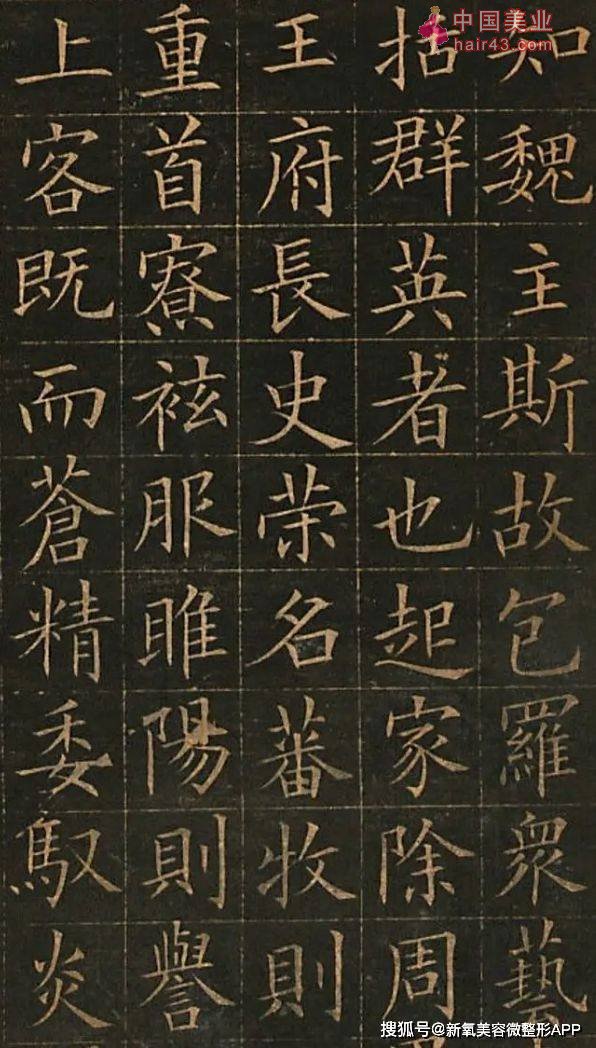 知魏主斯故包羅衆藝
括群英者也起家除周
王府長史荣名蕃牧則
重首寮袨服睢陽則譽
上客既而蒼精委馭炎
中国美业
hair43.com
搜狐号@新氧美容微整形APP